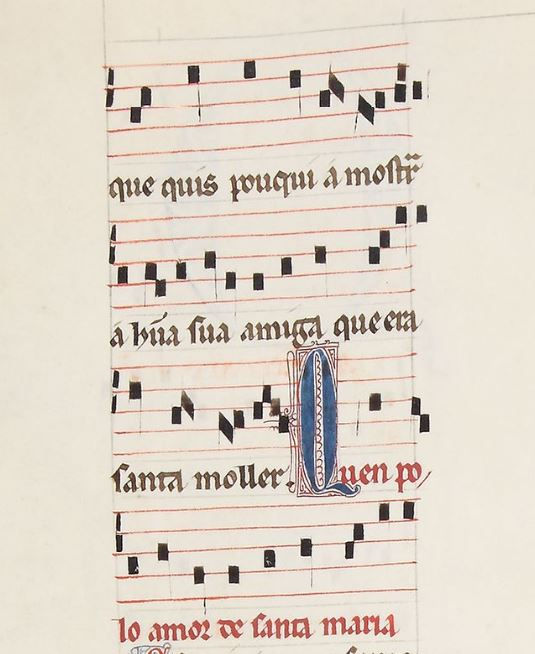 que quis pouqui á mostr̃
a hũa sua amiga que era
santa moller. Quen po/
lo amor de santa maria